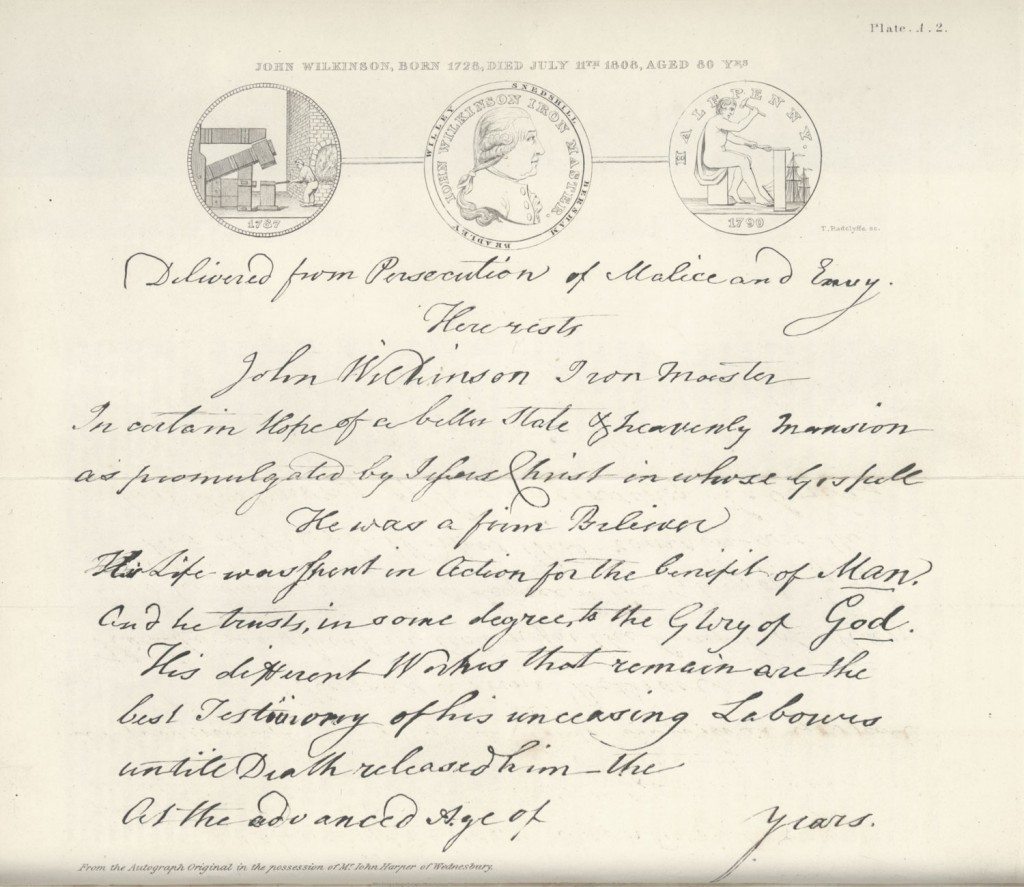 Plate. A. 2.
JOHN WILKINSON, BORN 1728, DIED JULY 11TH 1808, AGED 80 YRS
1787
WILLEY SNEDSHILL BERSHAM BRADLEY
JOHN WILKINSON IRON MASTER.
HALFPENNY.
1790
T. Radclyffe sc.
Delivered from Persecution of Malice and Envy.
Here rests
John Wilkinson Iron Master
In certain Hope of a better State & heavenly Mansion
as promulgated by Jesus Christ in whose Gospell
He was a firm Believer
His Life was spent in Action for the benifit of Man.
And he trusts, in some degree, to the Glory of God.
His different Workes that remain are the
best Testimony of his unceasing Labours
untill Death released him the
At the advanced Age of Years.
From the Autograph Original in the possession of Mr. John Harper of Wednesbury.